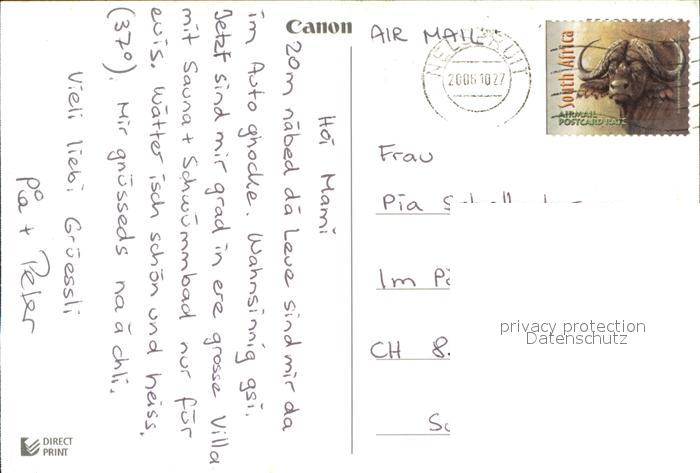 Canon
Hoi Mami
20m näbed dä Leue sind mir da
im Auto ghocke. Wahnsinnig gsi.
Jetzt sind mir grad in ere grosse Villa
mit Sauna + Schwümmbad nur für
eus. Wätter isch schön und heiss.
(37°). Mir gnüsseds na ä chli.
Vieli liebi Grüessli
Pia + Peter
DIRECT
PRINT
AIR MAIL
NELSPRUIT
20051027
South Africa
AIRMAIL
POSTCARD RATE
Frau
Pia
Im
CH 8.
privacy protection
Datenschutz